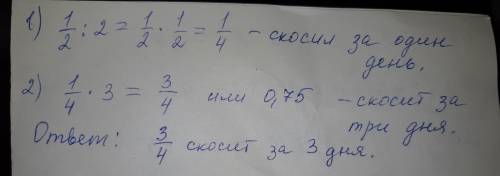 1) 1/2 : 2 = 1/2 · 1/2 = 1/4 – скосил за один
день.
2) 1/4 · 3 = 3/4 или 0,75 – скосит за
три дня.
Ответ: 3/4 скосит за 3 дня.